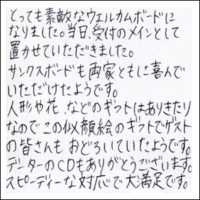 とっても素敵なウェルカムボードに
なりました。当日、受付のメインとして
置かせていただきました。
サンクスボードも両家ともに喜んで
いただけたようです。
人形や花、などのギフトはありきたり
なのでこの似顔絵のギフトでゲスト
の皆さんも おどろいていたようです。
デンターのCDもありがとうございます。
スピーディーな対応で大満足です。